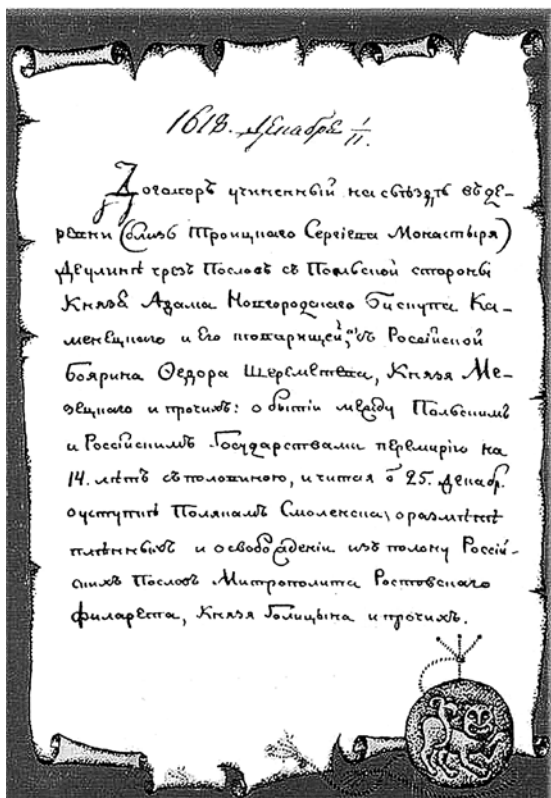 1618. Декабре 1/11.
Договоръ учиненный на съѣздѣ въ де-
ревни (близь Троицкаго Сергіева Монастыря)
Деулинѣ чрезъ Пословъ съ Польской стороны
Князя Адама Новгородскаго Бискупа Ка-
менецкаго и Его товарищей, съ Россійской
Боярина Ѳедора Шереметева, Князя Ме-
зецкаго и прочихъ: о бытіи между Польскимъ
и Россійскимъ Государствами перемирію на
14. лѣтъ съ половиною, считая ѿ 25. декабр.
о уступкѣ Полякамъ Смоленска, о размѣнѣ
плѣнныхъ и освобожденіи изъ полону Россій-
скихъ Пословъ Митрополита Ростовскаго
филарета, Князя Голицына и прочихъ.